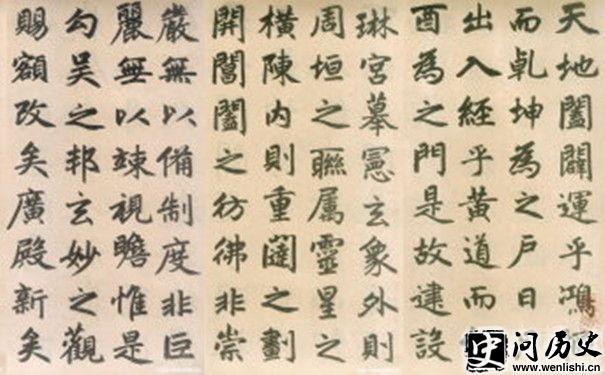 天地闔闢運乎鴻
而乹坤為之戶日
出入經乎黃道而
酉為之門是故建設
琳宮摹憲玄象外則
周垣之聯属靈星之
橫陳内則重闥之劃
開閶闔之彷彿非崇
嚴無以備制度非巨
麗無以竦視瞻惟是
勾吴之邦玄妙之觀
賜額改矣廣殿新矣
史问历史
www.wenlishi.cn